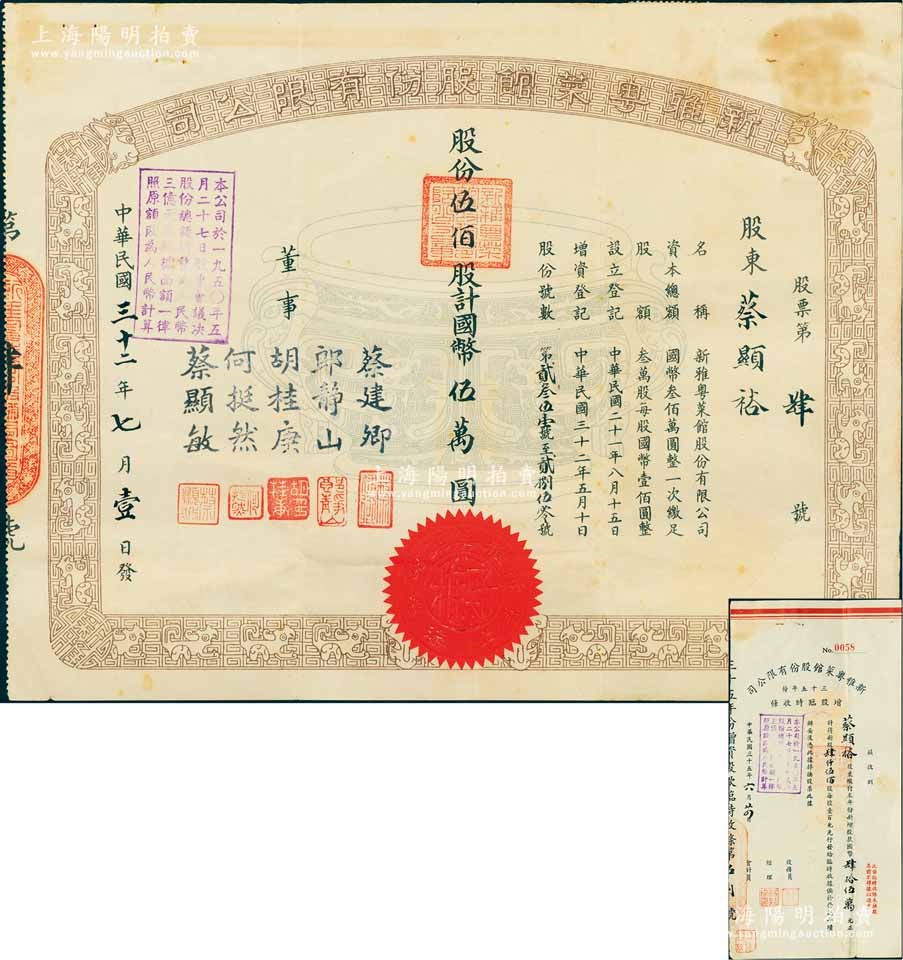 上海陽明拍賣
www.yangmingauction.com
新雅粤菜館股份有限公司
股票第肆號
股東蔡顯裕
名稱 新雅粤菜館股份有限公司
資本總額 國幣叁佰萬圓整一次繳足
股額 叁萬股每股國幣壹佰圓整
設立登記 中華民國二十一年八月十五日
增資登記 中華民國三十二年五月十日
股份號數 第貳叁伍壹號至貳捌伍零號
股份伍佰股計國幣伍萬圓
董事
蔡建卿
郎靜山
胡桂庚
何挺然
蔡顯敏
本公司於一九五〇年五
月二十七日股東會議决
股份總額
三億元
照原額改為人民幣計算
中華民國三十二年七月壹日發
No. 0058
新雅粤菜館股份有限公司
三十五年份
增股臨時收條
茲收到
蔡顯裕
肆仟伍佰
肆拾伍萬
元正
中華民國三十五年六月
經理
會計員
三十五年份增資股款臨時收條第伍捌號
上海陽明拍賣
www.yangmingauction.com